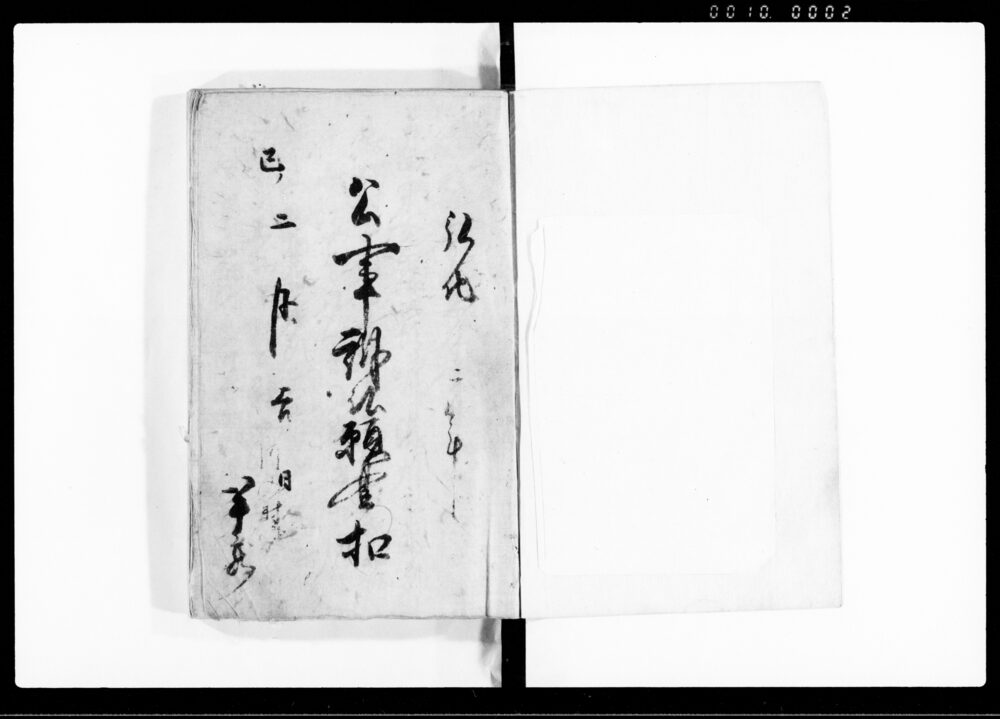 0010 0002
弘化二年
公事訴訟願書扣
巳二月吉日